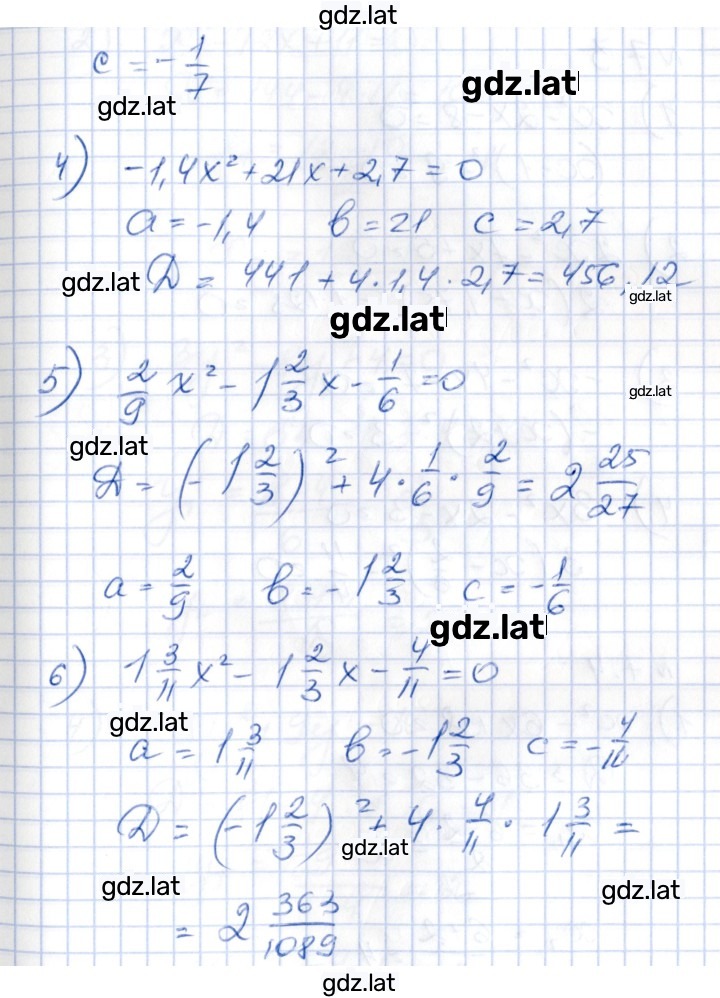 gdz.lat
c = -1/7
gdz.lat
gdz.lat
4) -1,4x² + 21x + 2,7 = 0
a = -1,4 в = 21 c = 2,7
gdz.lat Д = 441 + 4 · 1,4 · 2,7 = 456,12
gdz.lat
gdz.lat
5) 2/9 x² - 1 2/3 x - 1/6 = 0
gdz.lat
gdz.lat
Д = (-1 2/3)² + 4 · 1/6 · 2/9 = 2 25/27
a = 2/9 в = -1 2/3 c = -1/6
gdz.lat
6) 1 3/11 x² - 1 2/3 x - 4/11 = 0
gdz.lat
a = 1 3/11 в = -1 2/3 c = -4/11
Д = (-1 2/3)² + 4 · 4/11 · 1 3/11 =
gdz.lat
gdz.lat
gdz.lat
= 2 363/1089
gdz.lat